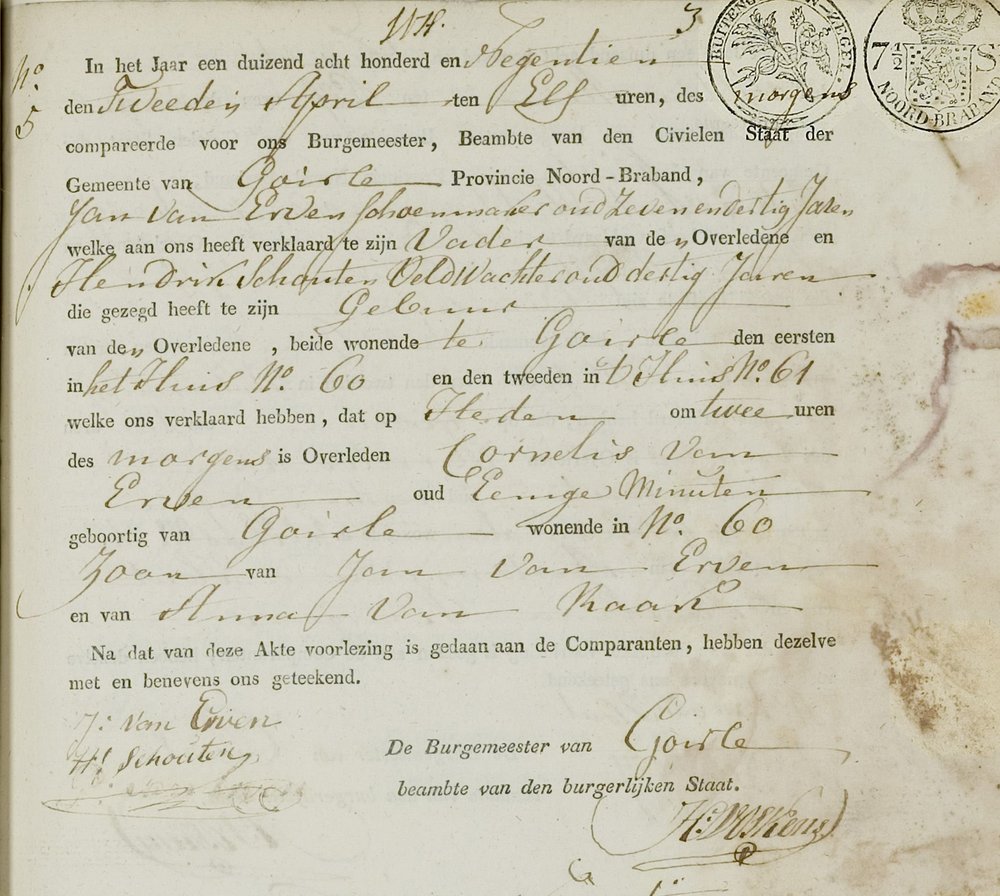 3
N.o 5
In het Jaar een duizend acht honderd en Negentien
den Tweeden April ten Elf uren, des morgens
compareerde voor ons Burgemeester, Beambte van den Civielen Staat der
Gemeente van Goirle Provincie Noord-Braband,
Jan van Erven Schoenmaker oud Zeven en dertig Jaren
welke aan ons heeft verklaard te zijn Vader van den Overledene en
Hendrik Schouten Veldwachter oud dertig Jaren
die gezegd heeft te zijn Gebuur
van den Overledene, beide wonende te Goirle den eersten
in het Huis N.o 60 en den tweeden in t Huis N.o 61
welke ons verklaard hebben, dat op Heden om twee uren
des morgens is Overleden Cornelis van
Erven oud Eenige Minuten
geboortig van Goirle wonende in N.o 60
Zoon van Jan van Erven
en van Anna van Raak
Na dat van deze Akte voorlezing is gedaan aan de Comparanten, hebben dezelve
met en benevens ons geteekend.
J: van Erven
H: Schouten
De Burgemeester van Goirle
beambte van den burgerlijken Staat.
BUITENGEWOON ZEGEL
7 1/2 S
NOORD-BRABAND